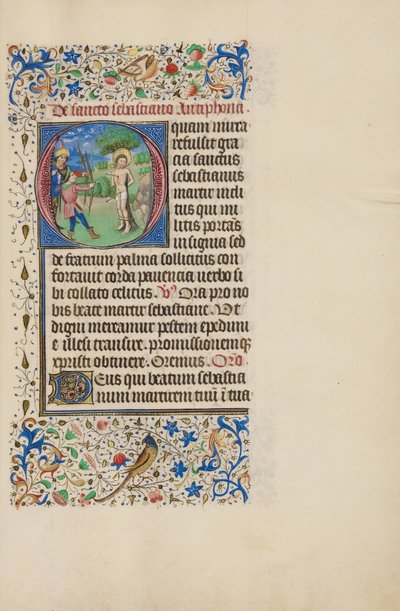 De sancto sebastiano Antiphona.
O quam mira
refulsit gra
cia sanctus
sebastianus
martir incli
tus qui mi
litis portās
insignia sed
de fratrum palma sollicitus con
fortauit corda pauencia uerbo si
bi collato celitus V̄ Ora pro no
bis beate martir sebastiane. Ut
digni mereamur pestem epydimi
e illesi transire. promissionem qȝ
xpristi obtinere. Oremus. Oro
Deus qui beatum sebastia
num martirem tuū ī tua